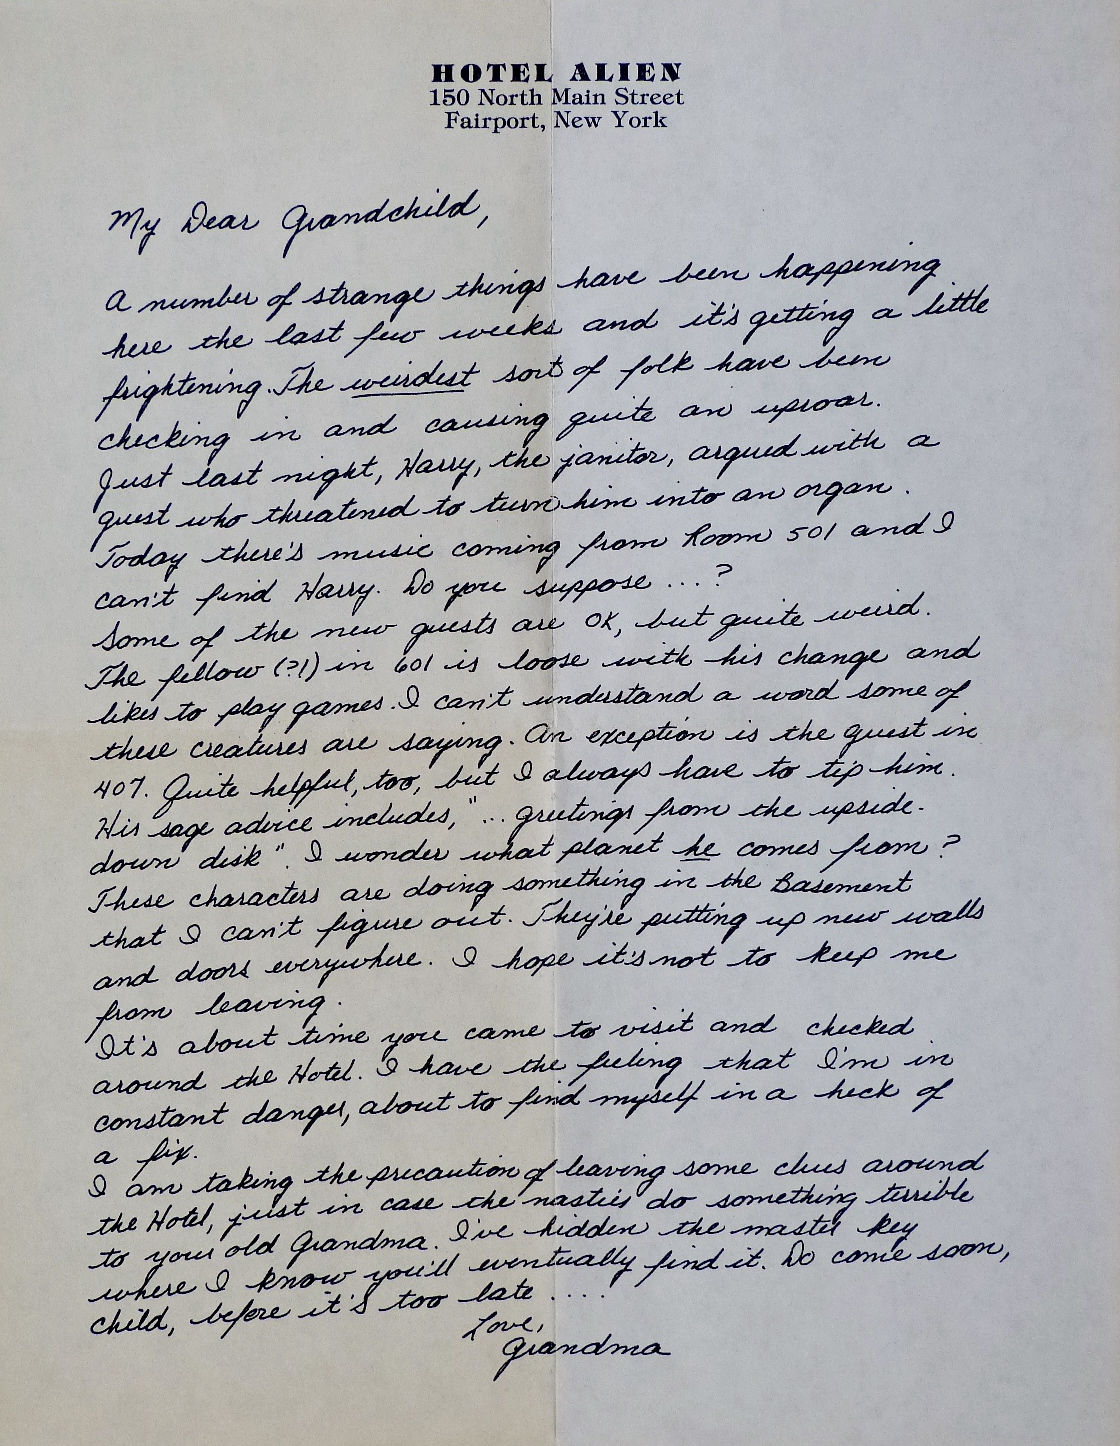 HOTEL ALIEN
150 North Main Street
Fairport, New York
My Dear Grandchild,
A number of strange things have been happening
here the last few weeks and it's getting a little
frightening. The weirdest sort of folk have been
checking in and causing quite an uproar.
Just last night, Harry, the janitor, argued with a
guest who threatened to turn him into an organ.
Today there's music coming from Room 501 and I
can't find Harry. Do you suppose ...?
Some of the new guests are OK, but quite weird.
The fellow (?!) in 601 is loose with his change and
likes to play games. I can't understand a word some of
these creatures are saying. An exception is the guest in
407. Quite helpful, too, but I always have to tip him.
His sage advice includes, "... greetings from the upside-
down disk". I wonder what planet he comes from?
These characters are doing something in the Basement
that I can't figure out. They're putting up new walls
and doors everywhere. I hope it's not to keep me
from leaving.
It's about time you came to visit and checked
around the Hotel. I have the feeling that I'm in
constant danger, about to find myself in a heck of
a fix.
I am taking the precaution of leaving some clues around
the Hotel, just in case the nasties do something terrible
to your old Grandma. I've hidden the master key
where I know you'll eventually find it. Do come soon,
child, before it's too late ....
Love,
Grandma